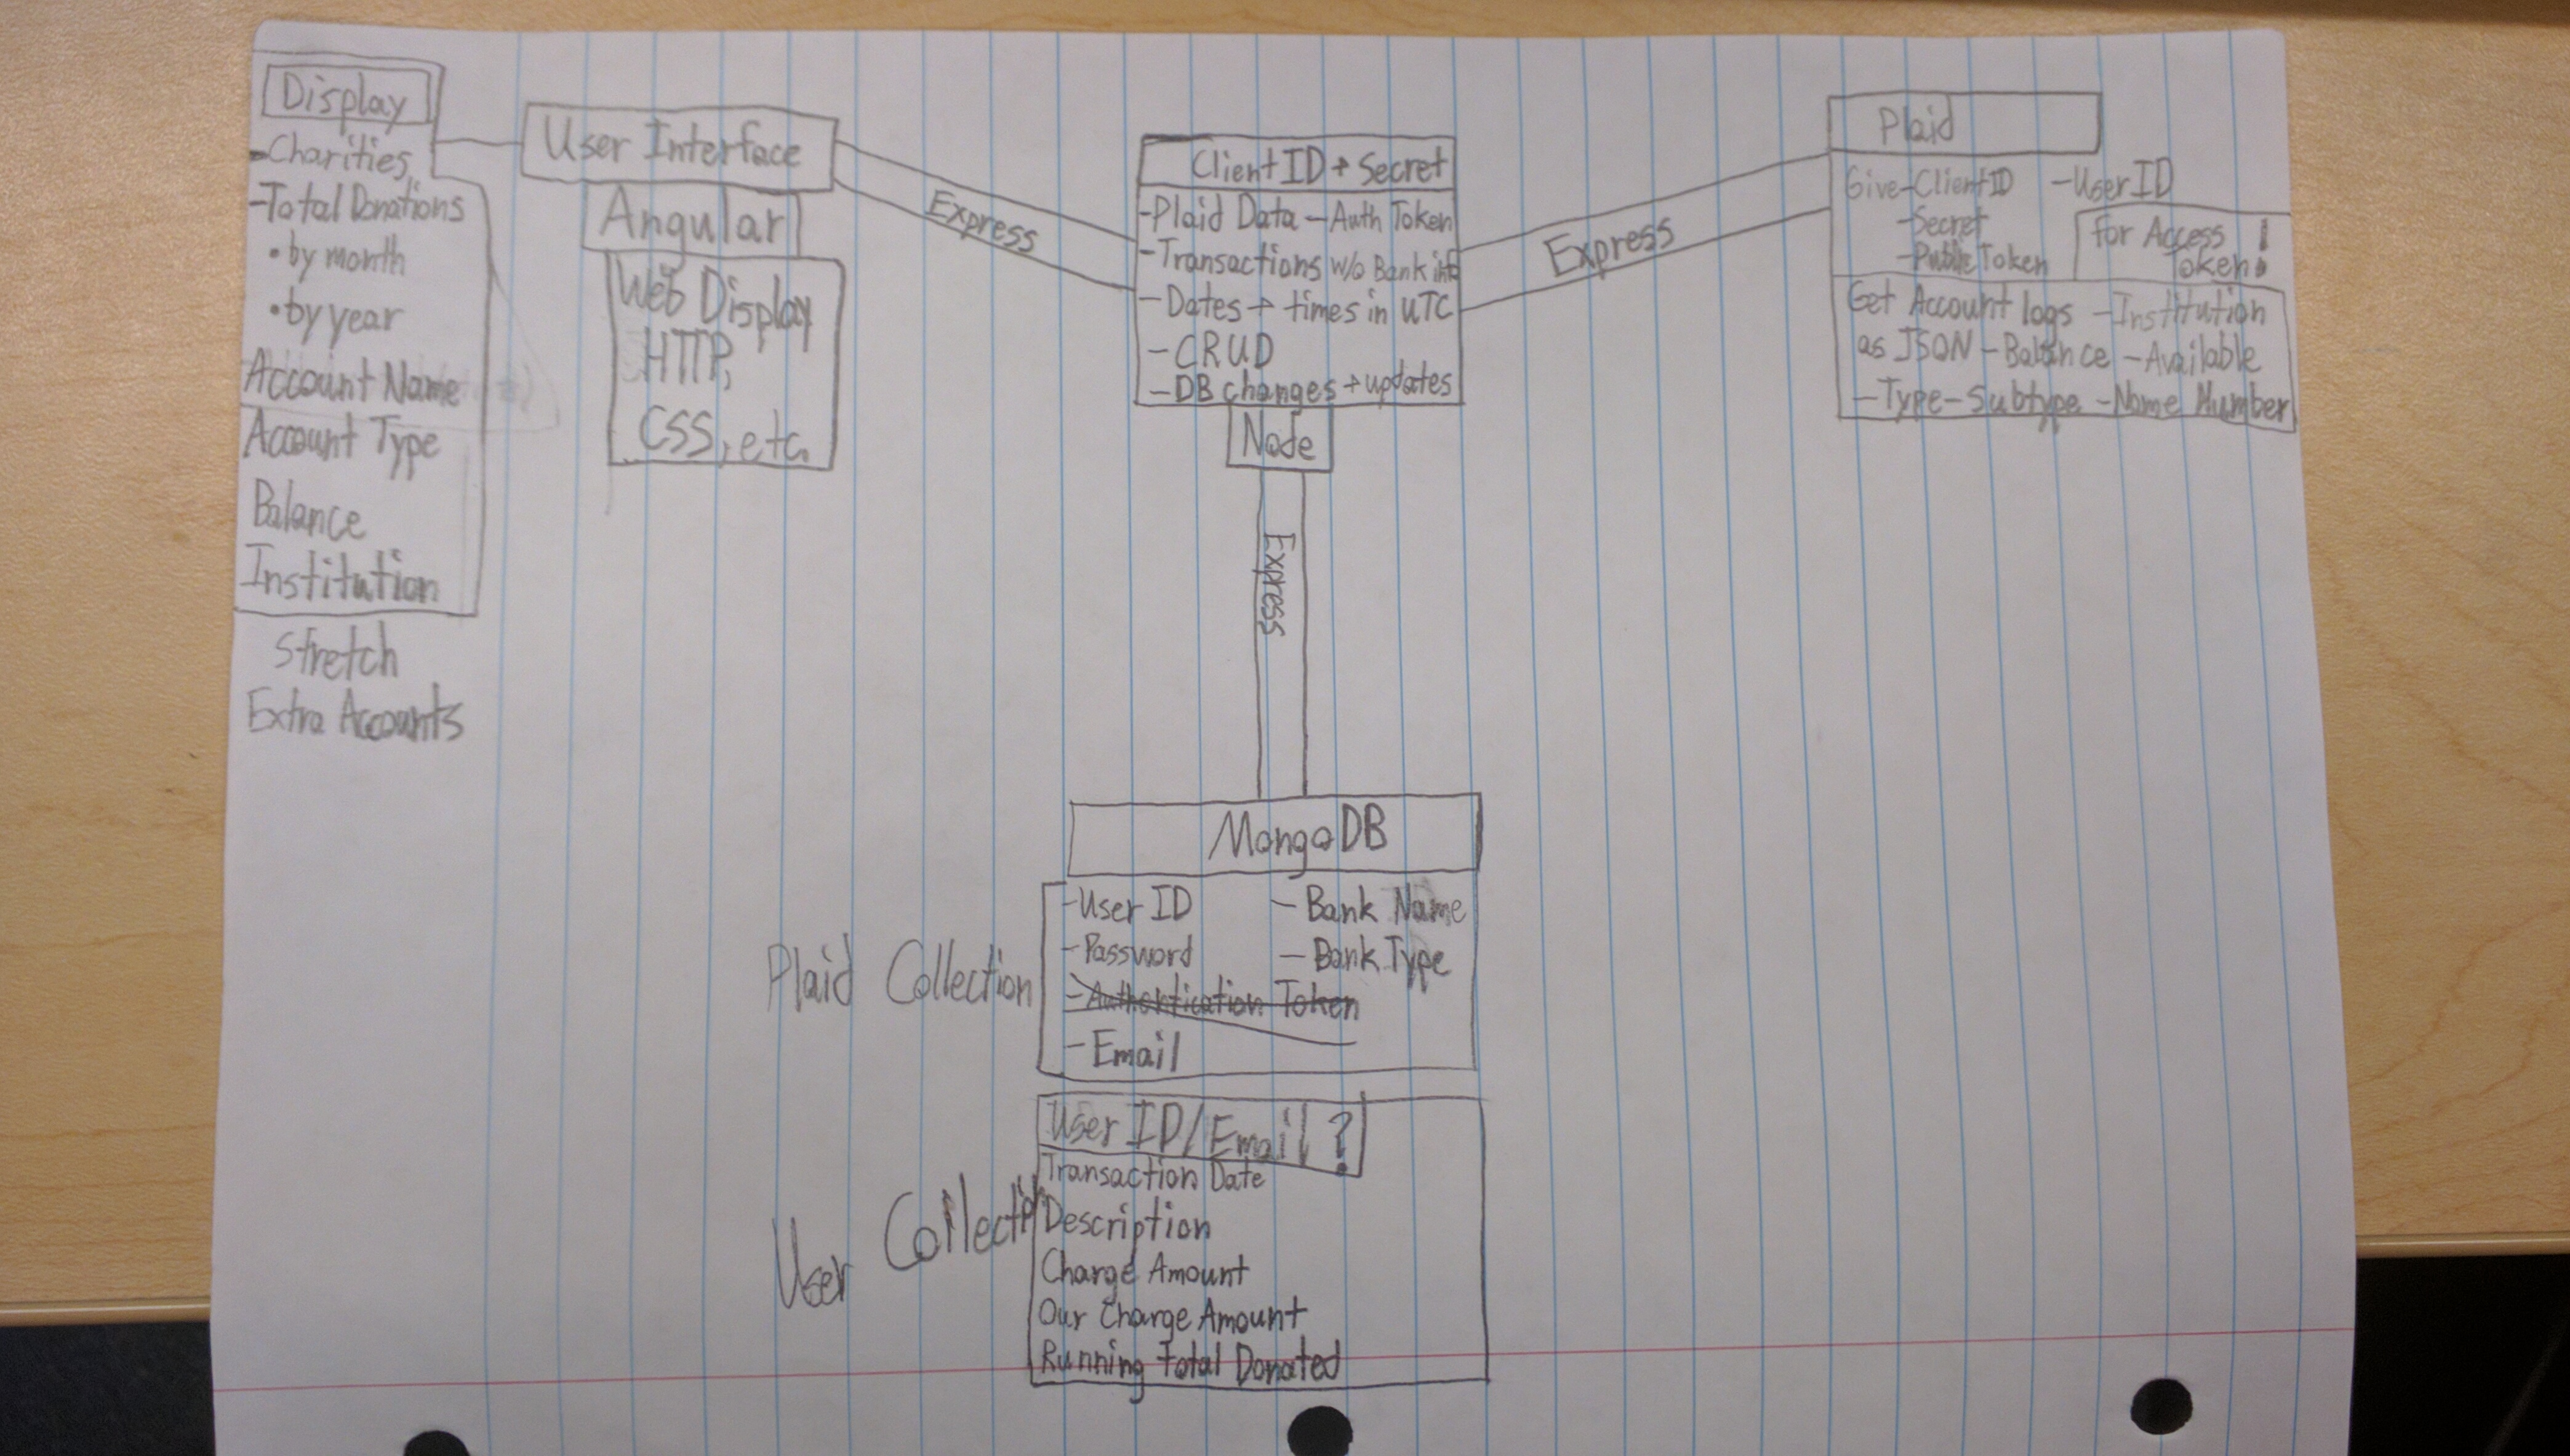 Display
-Charities
-Total Donations
•by month
•by year
Account Name
Account Type
Balance
Institution
Stretch
Extra Accounts
User Interface
Angular
Web Display
HTTP,
CSS, etc.
Express
Client ID + Secret
-Plaid Data -Auth Token
-Transactions w/o Bank info
-Dates + times in UTC
-CRUD
-DB changes + updates
Node
Express
Express
Plaid
Give-Client ID -User ID
-Secret
-Public Token
For Access
Token!
Get Account logs -Institution
as JSON -Balance -Available
-Type-Subtype -Name Number
MongoDB
Plaid Collection
-User ID -Bank Name
-Password -Bank Type
-Authentication Token
-Email
User Collection
User ID/Email?
Transaction Date
Description
Charge Amount
Our Charge Amount
Running Total Donated